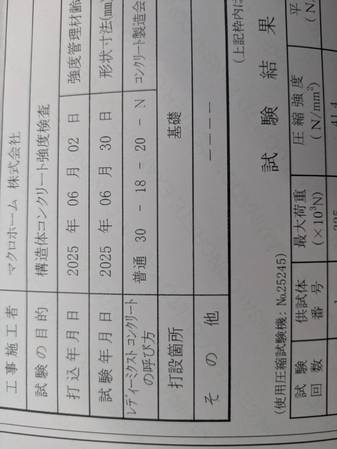 工事施工者 マクロホーム 株式会社
試験の目的 構造体コンクリート強度検査
打込年月日 2025 年 06 月 02 日 強度管理材齢
試験年月日 2025 年 06 月 30 日 形状寸法(㎜)
レディーミクストコンクリートの呼び方 普通 30 - 18 - 20 - N コンクリート製造会
打設箇所 基礎
その他 ----
(上記枠内は
試験結果
(使用圧縮試験機: No.25245)
試験回数 供試体番号 最大荷重(×10³N) 圧縮強度(N/mm²) 平